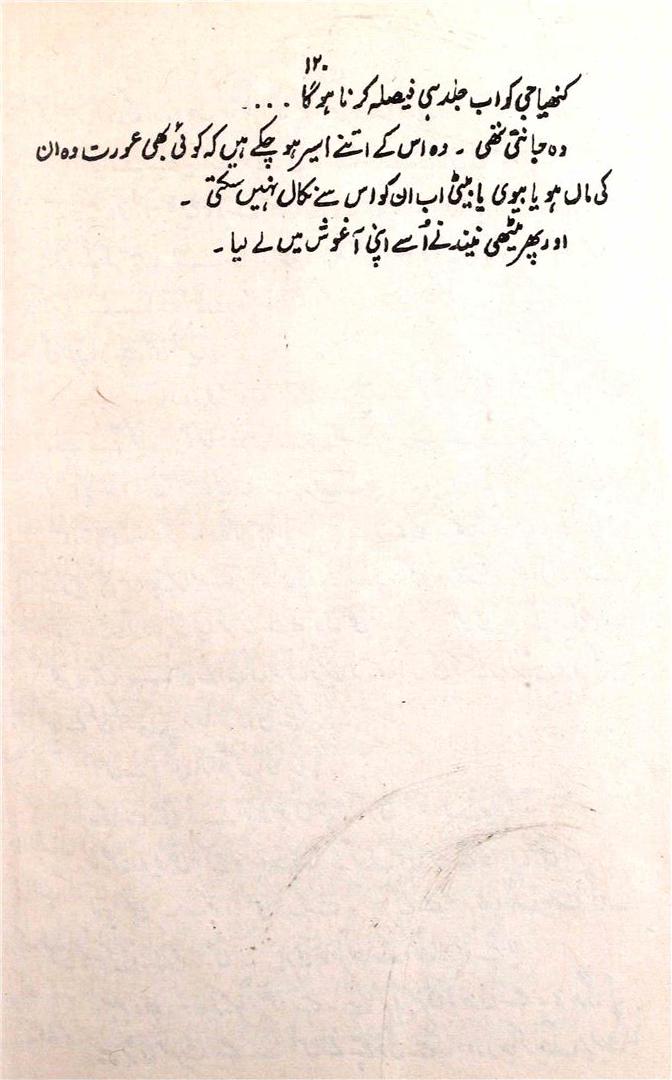 ۱۲۰
کنھیا جی کو اب جلد ہی فیصلہ کرنا ہوگا ....
وہ جانتی تھی ۔ وہ اس کے اتنے اسیر ہو چکے ہیں کہ کوئی بھی عورت وہ ان
کی ماں ہو یا بیوی یا بیٹی اب ان کو اس سے نکال نہیں سکتی ۔
اور پھر میٹھی نیند نے اُسے اپنی آغوش میں لے لیا ۔